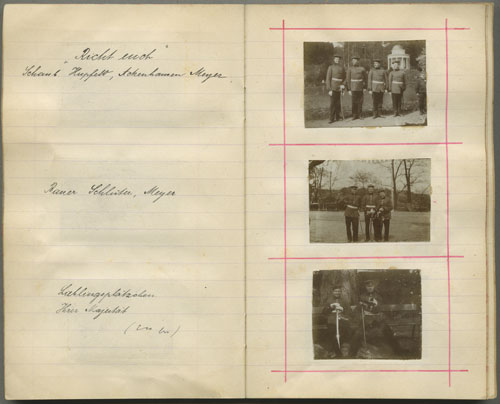 "Richt euch"
Schaub Hupfeld, Ackenhausen Meyer.
Rauer Schlüter, Meyer
Lieblingsplätzchen
Ihrer Majestät